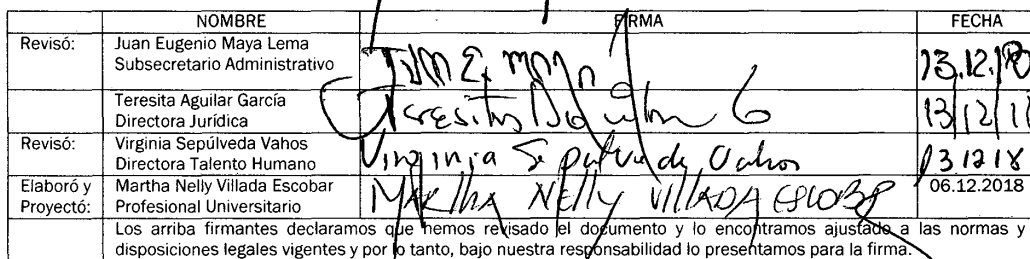 NOMBRE FIRMA FECHA
Revisó: Juan Eugenio Maya Lema
Subsecretario Administrativo 13.12.18
Teresita Aguilar García Teresita Aguilar G
Directora Jurídica 13/12/1
Revisó: Virginia Sepúlveda Vahos
Directora Talento Humano Virginia Sepulveda Vahos 13 12 18
Elaboró y Martha Nelly Villada Escobar MARTHA NElly VIllADA ESCOBAR 06.12.2018
Proyectó: Profesional Universitario
Los arriba firmantes declaramos que hemos revisado el documento y lo encontramos ajustado a las normas y
disposiciones legales vigentes y por lo tanto, bajo nuestra responsabilidad lo presentamos para la firma.